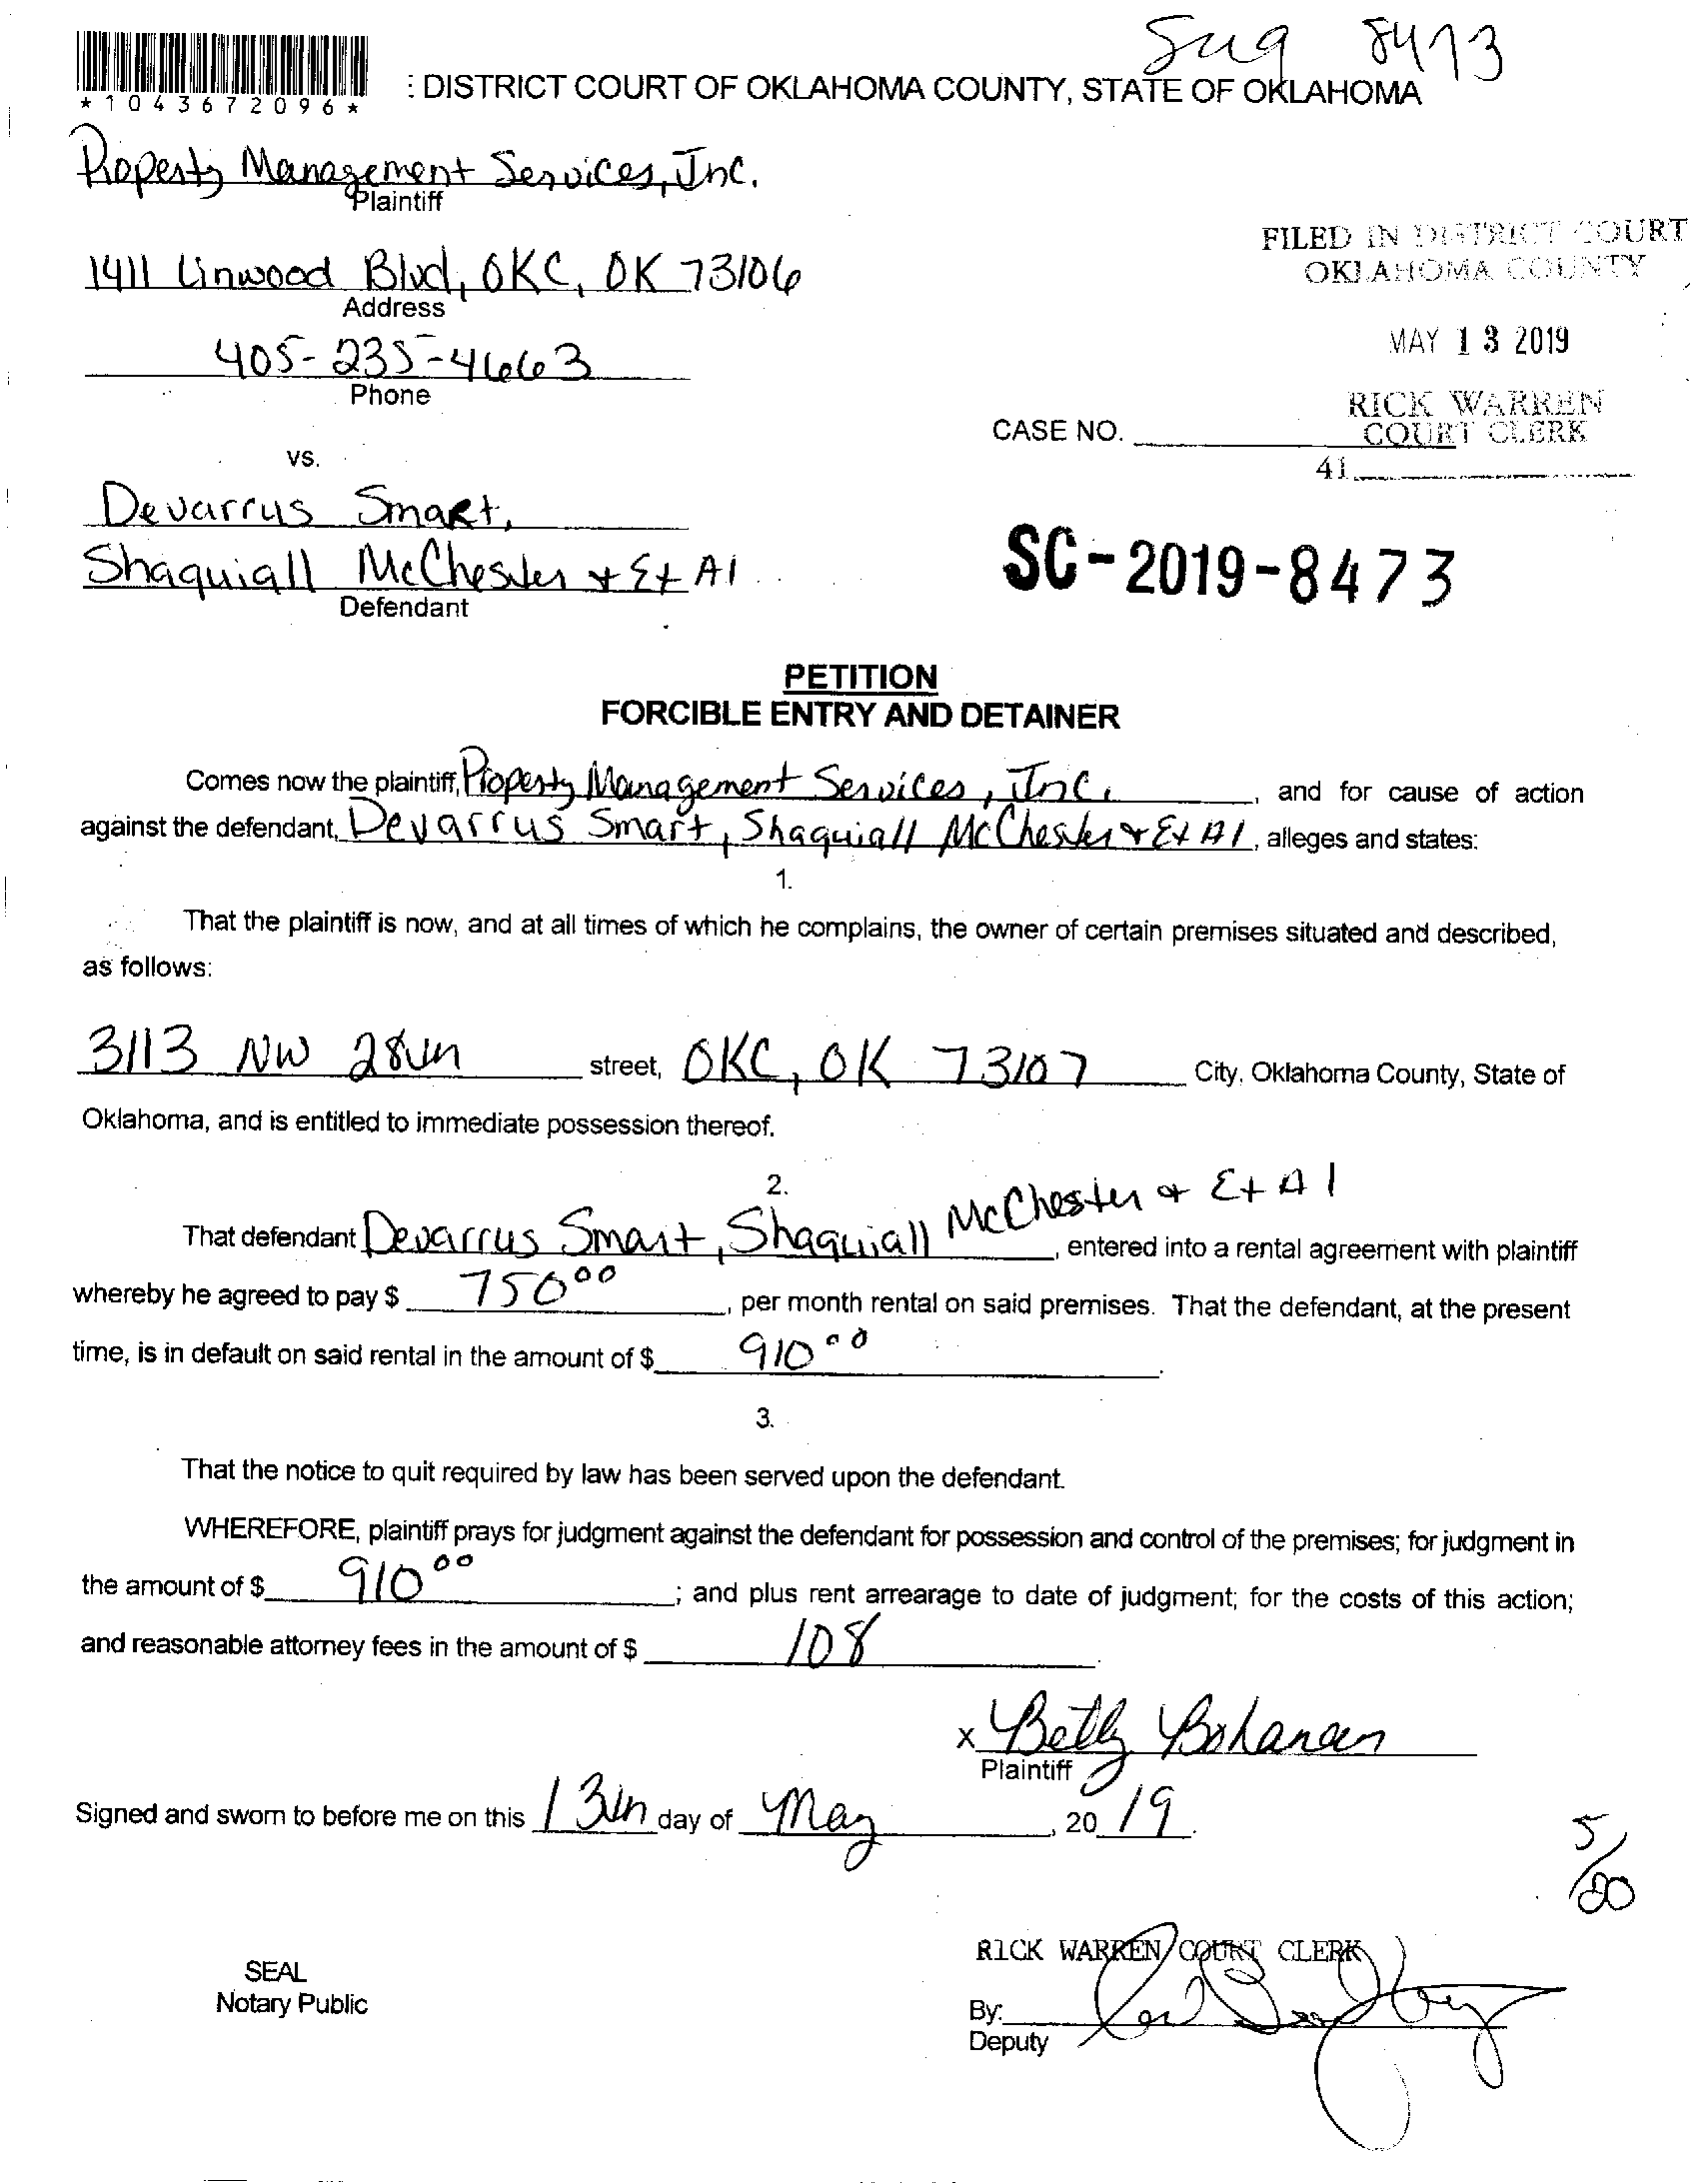 8473
*1043672096*
: DISTRICT COURT OF OKLAHOMA COUNTY, STATE OF OKLAHOMA
Property Management Services, Inc.
Plaintiff
1411 Linwood Blvd, OKC, OK 73106
Address
405-235-4663
Phone
FILED IN DISTRICT COURT
OKLAHOMA COUNTY
MAY 13 2019
RICK WARREN
COURT CLERK
CASE NO.
41
vs.
Devarrus Smart,
Shaquiall McChester + Et Al
Defendant
SC-2019-8473
PETITION
FORCIBLE ENTRY AND DETAINER
Comes now the plaintiff, Property Management Services, Inc. , and for cause of action
against the defendant, Devarrus Smart, Shaquiall McChester & Et Al, alleges and states:
1.
That the plaintiff is now, and at all times of which he complains, the owner of certain premises situated and described,
as follows:
3113 NW 28th street, OKC, OK 73107 City, Oklahoma County, State of
Oklahoma, and is entitled to immediate possession thereof.
2.
That defendant Devarrus Smart, Shaquiall McChester & Et Al, entered into a rental agreement with plaintiff
whereby he agreed to pay $ 750 00, per month rental on said premises. That the defendant, at the present
time, is in default on said rental in the amount of $ 910 00.
3.
That the notice to quit required by law has been served upon the defendant.
WHEREFORE, plaintiff prays for judgment against the defendant for possession and control of the premises; for judgment in
the amount of $ 910 00; and plus rent arrearage to date of judgment; for the costs of this action;
and reasonable attorney fees in the amount of $ 108.
x Betty Bohanan
Plaintiff
Signed and sworn to before me on this 13th day of May, 20 19.
5/20
RICK WARREN COURT CLERK
SEAL
Notary Public
By:
Deputy